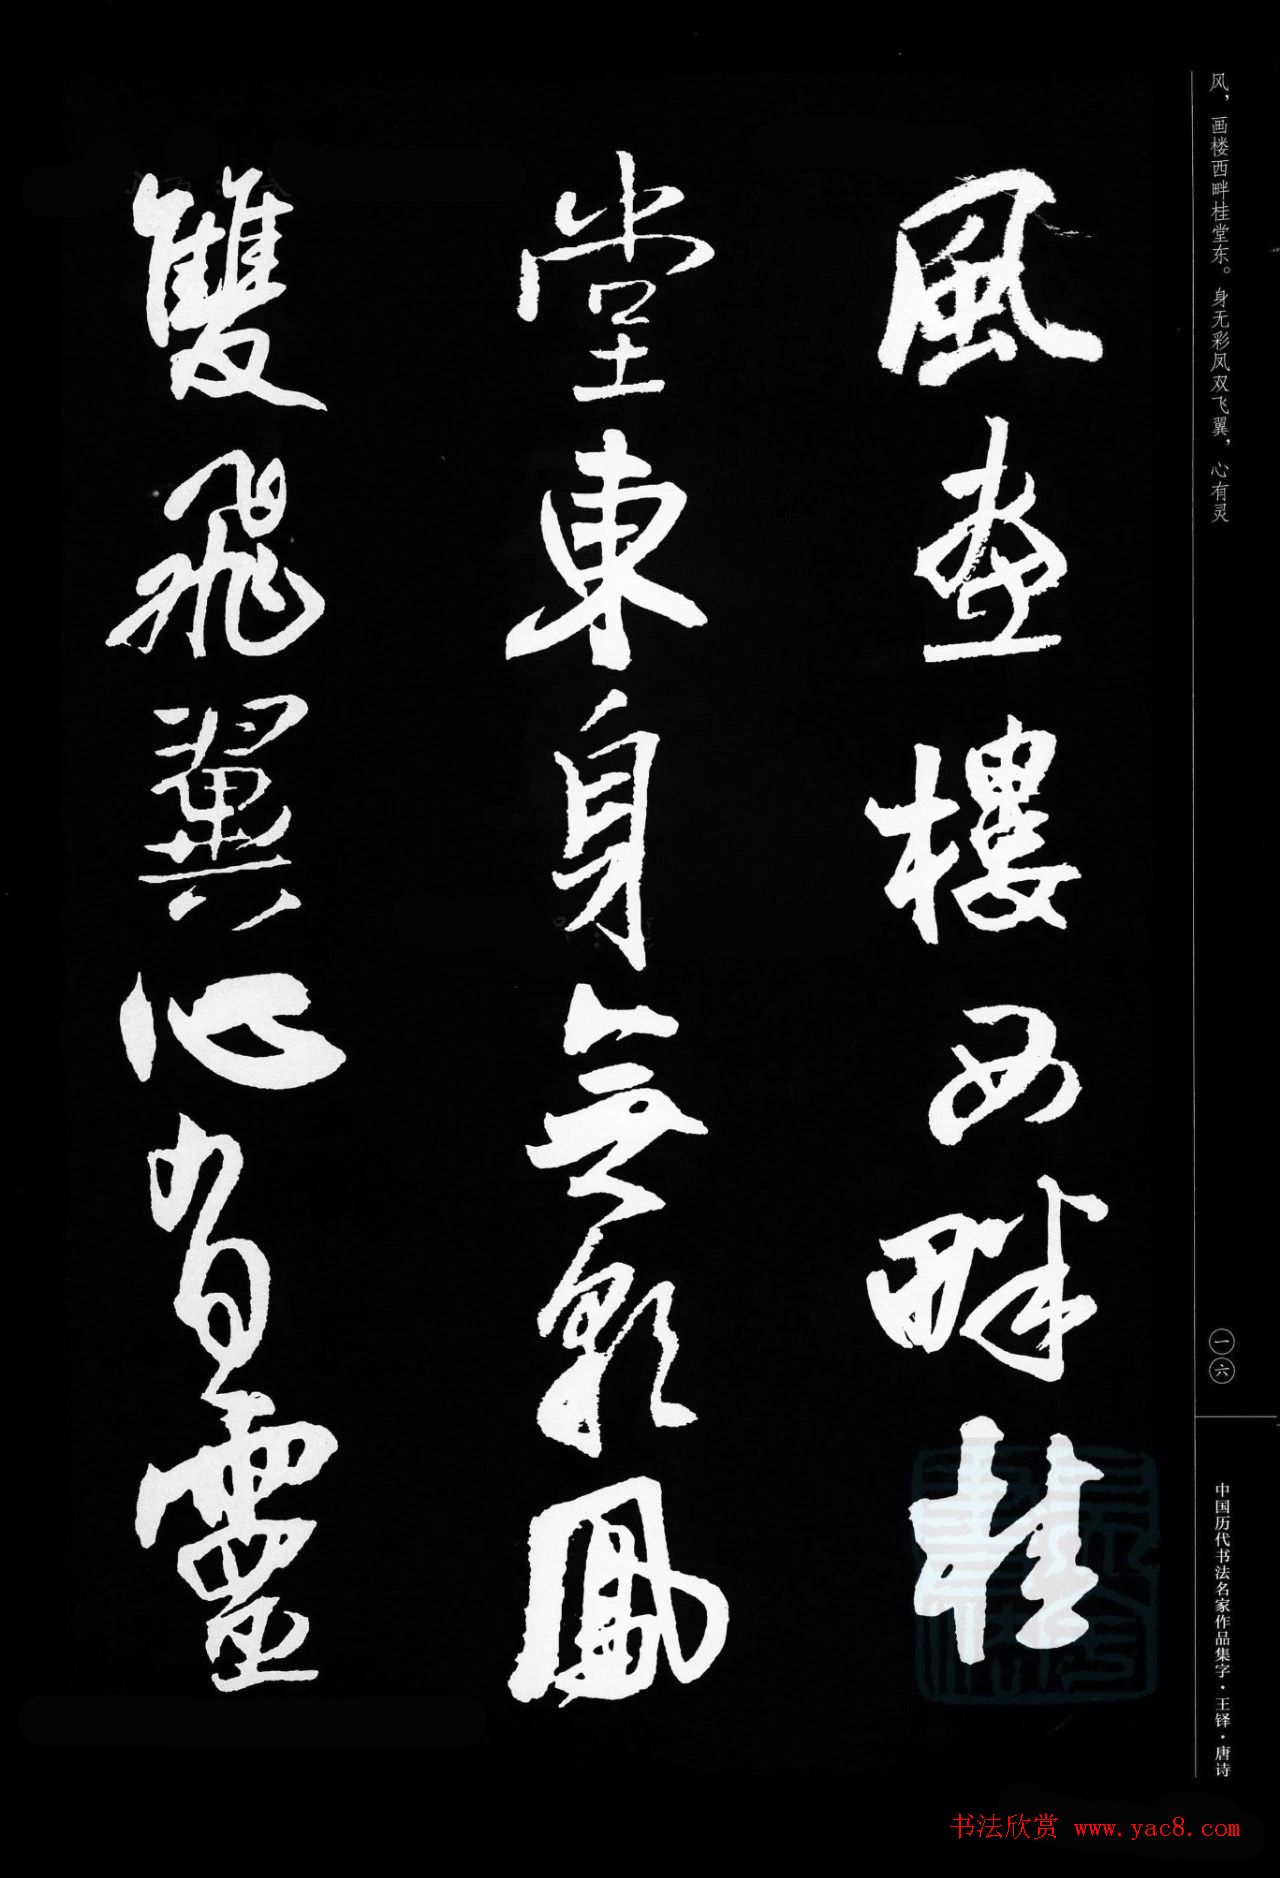 风，画楼西畔桂堂东。身无彩凤双飞翼，心有灵
風畫樓西畔桂
堂東身無彩鳳
雙飛翼心有靈
一六
中国历代书法名家作品集字·王铎·唐诗
书法欣赏 www.yac8.com